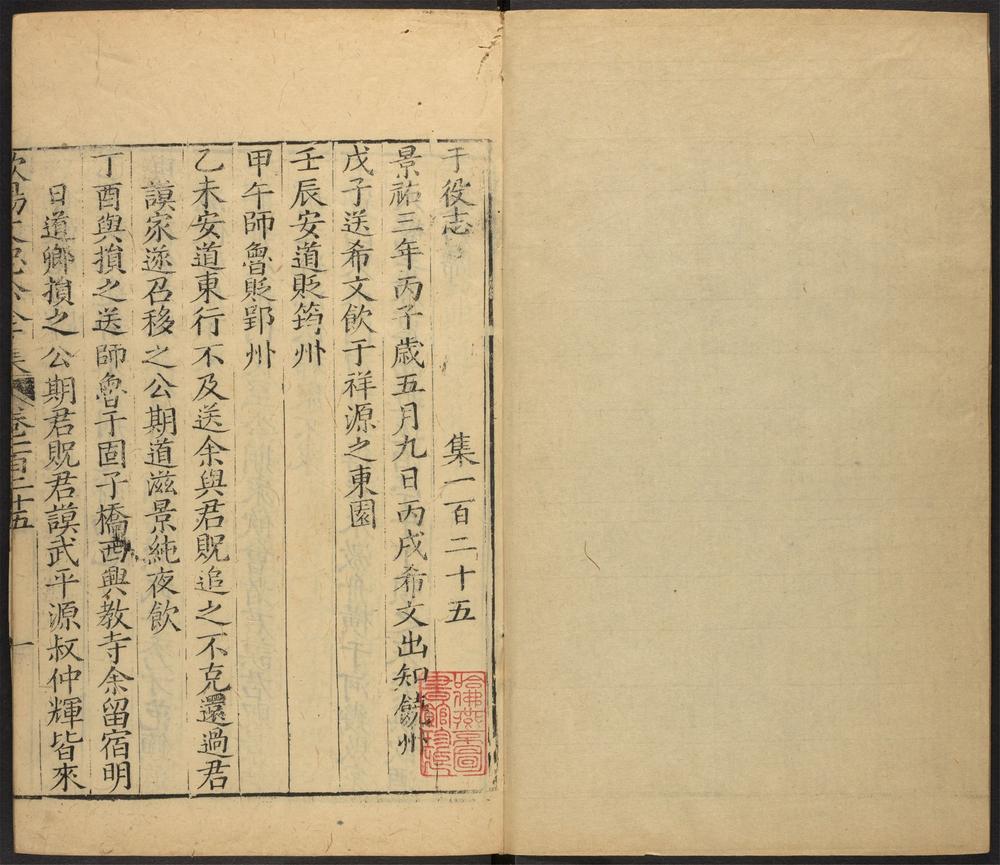 于役志 集一百二十五
景祐三年丙子歲五月九日丙戌希文出知饒州
戊子送希文飲于祥源之東園
壬辰安道貶筠州
甲午師魯貶郢州
乙未安道東行不及送余與君貺追之不克還過君
謨家遂召移之公期道滋景純夜飲
丁酉與損之送師魯于固子橋西興教寺余留宿明
日道卿損之公期君貺君謨武平源叔仲輝皆來
歐陽文忠公全集 卷一百二十五 一
哈佛燕京圖書館珍藏